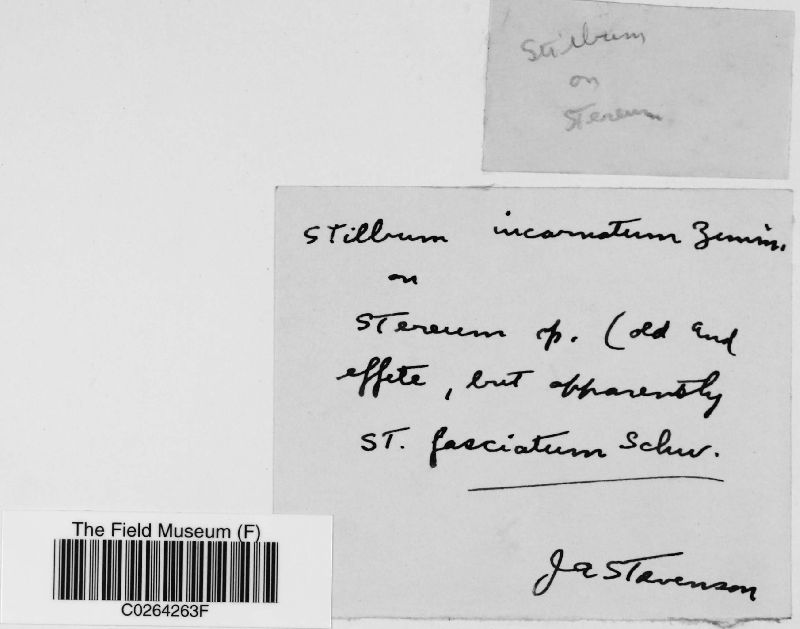 Stilbum
on
Stereum
Stilbum incarnatum Zimm.
on
Stereum sp. (old and
effete, but apparently
St. fasciatum Schw.
J A Stevenson
The Field Museum (F)
C0264263F